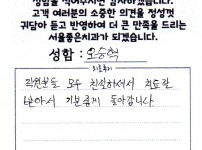 성함을 적어주시면 감사하겠습니다.
고객 여러분의 소중한 의견을 정성껏
귀담아 듣고 반영하여 더 큰 만족을 드리는
서울좋은치과가 되겠습니다.
성함 : 오승혁
직원분들 모두 친절하셔서 치료잘
받아서 기분좋게 돌아갑니다